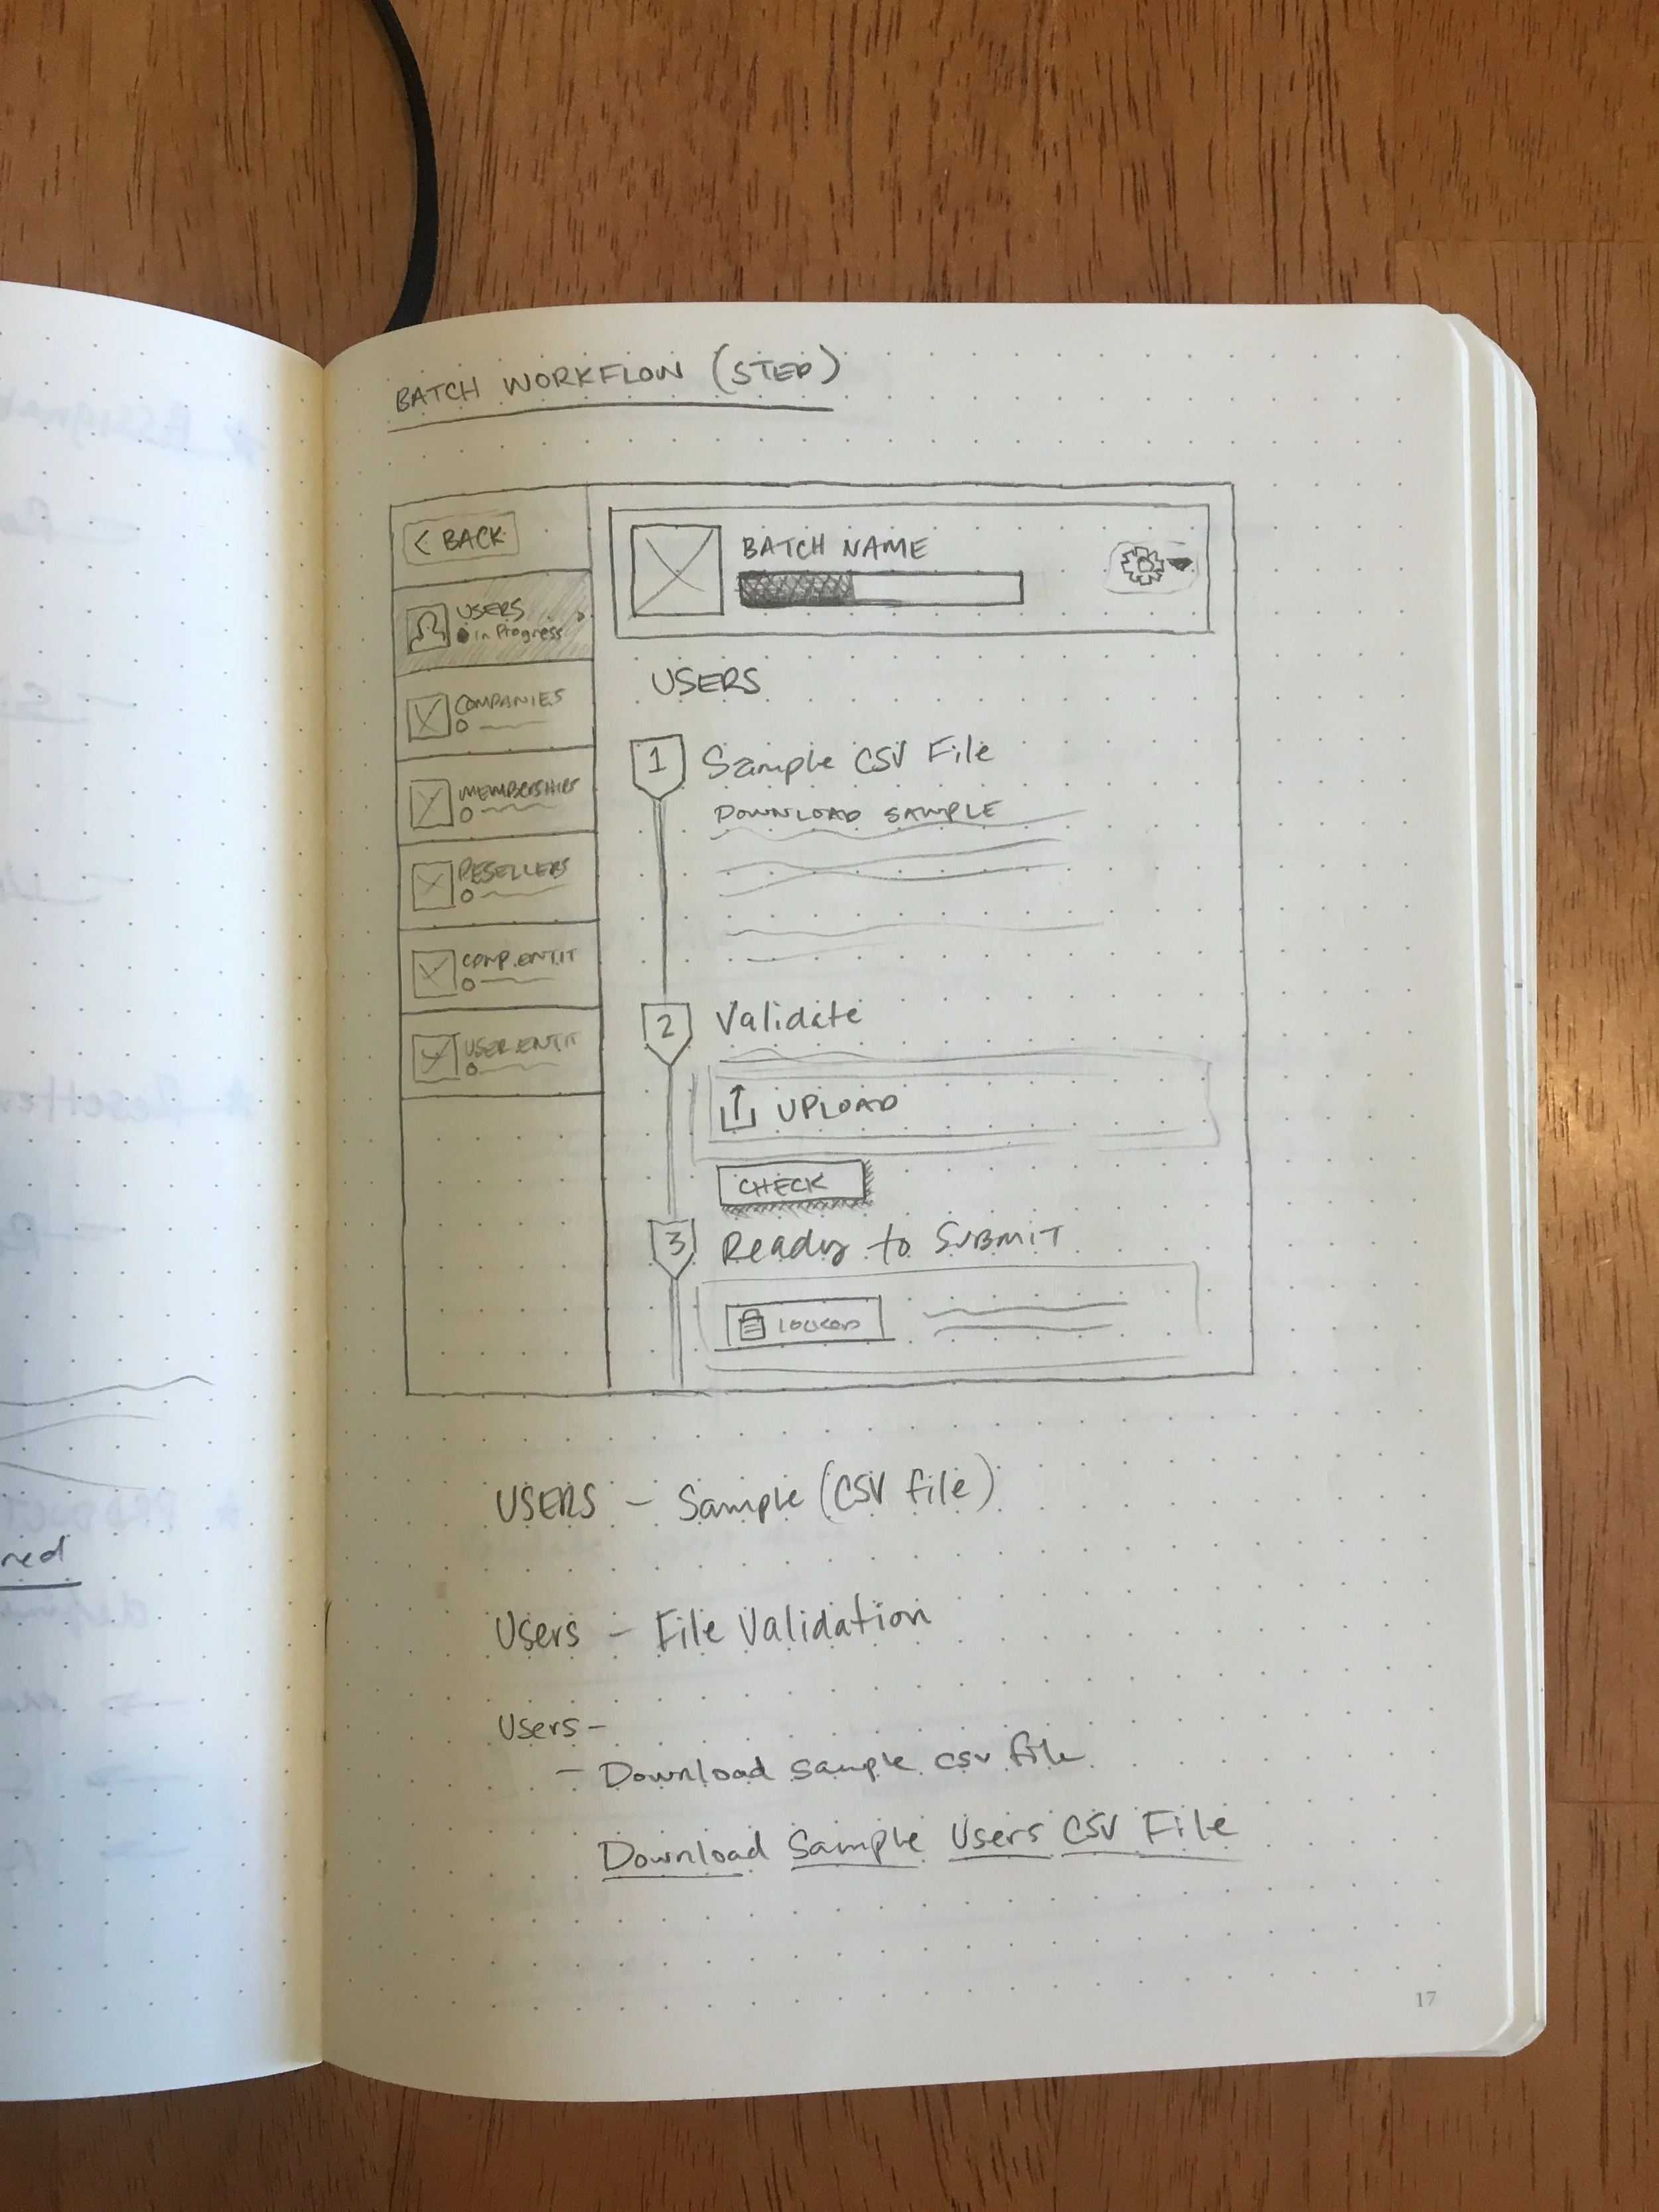 BATCH WORKFLOW (STEP)
< BACK
USERS
in Progress
COMPANIES
MEMBERSHIPS
RESELLERS
COMP. ENTIT
USER. ENTIT
BATCH NAME
USERS
1 Sample CSV File
DOWNLOAD SAMPLE
2 Validate
UPLOAD
CHECK
3 Ready to SUBMIT
LOCKED
USERS - Sample (CSV file)
Users - File Validation
Users -
- Download sample csv file
Download Sample Users CSV File
17
ned